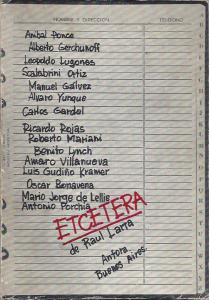 NOMBRE Y DIRECCION TELEFONO
Anibal Ponce
Alberto Gerchunoff
Leopoldo Lugones
Scalabrini Ortiz
Manuel Gálvez
Alvaro Yunque
Carlos Gardel
Ricardo Rojas
Roberto Mariani
Benito Lynch
Amaro Villanueva
Luis Gudiño Kramer
Oscar Bonavena
Mario Jorge de Lellis
Antonio Porchia
ETCETERA
de Raul Larra
Anfora
Buenos Aires